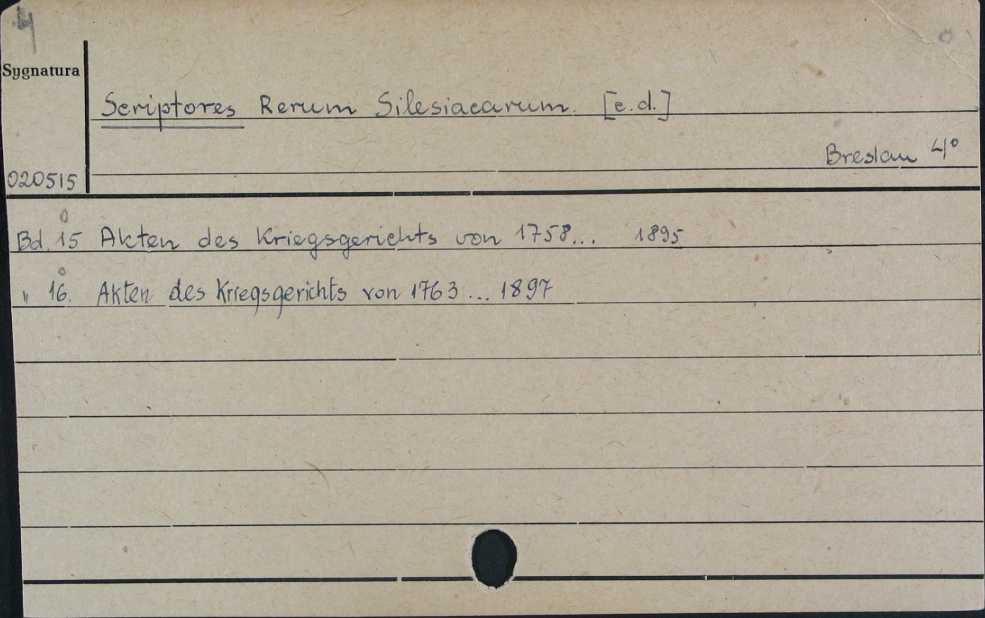 4
Sygnatura
Scriptores Rerum Silesiacarum. [e.d.]
Breslau 4°
020515
Bd. 15 Akten des Kriegsgerichts von 1758... 1895
" 16. Akten des Kriegsgerichts von 1763... 1897